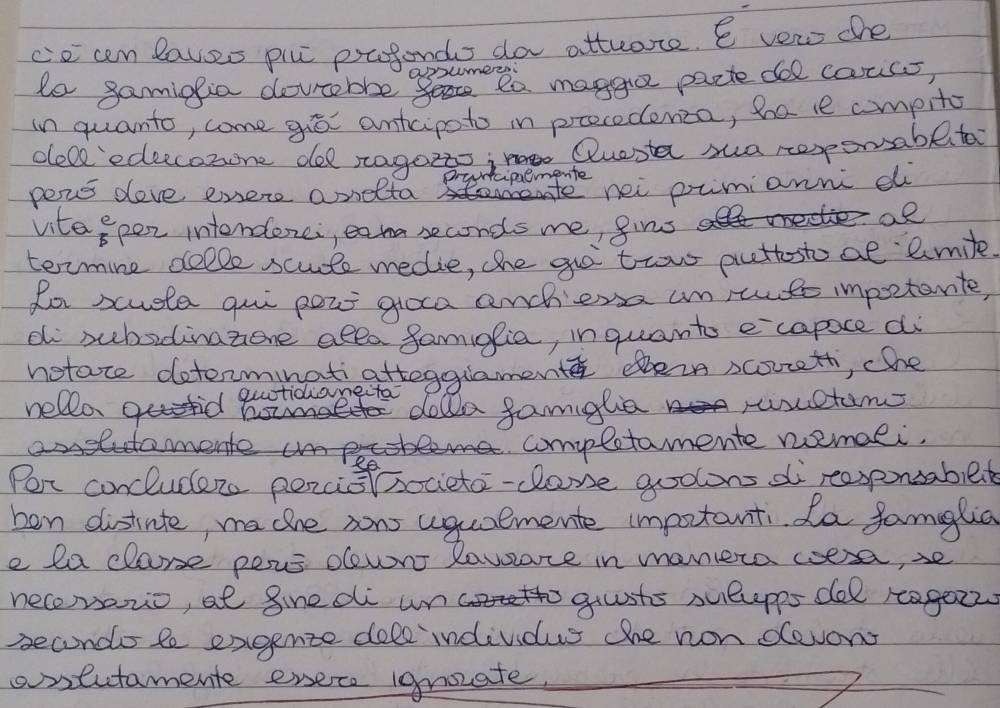 c'è un lavoro più profondo da attuare. È vero che
la famiglia dovrebbe assumersi la maggior parte del carico,
in quanto, come già anticipato in precedenza, ha il compito
dell'educazione del ragazzo; Questa sua responsabilità
però deve essere assolta principlemente nei primi anni di
vita e per intenderci, secondo me, fino al
termine delle scuole medie, che già trovo piuttosto al limite.
La scuola qui però gioca anch'essa un ruolo importante,
di subordinazione alla famiglia, in quanto è capace di
notare determinati atteggiamenti scorretti, che
nella quotidianeità della famiglia risultano
completamente normali.
Per concludere perciò le società-classe godono di responsabilità
ben distinte, ma che sono ugualmente importanti. La famiglia
e la classe però devono lavorare in maniera coesa, se
necessario, al fine di un giusto sviluppo del ragazzo
secondo le esigenze dell'individuo che non devono
assolutamente essere ignorate.